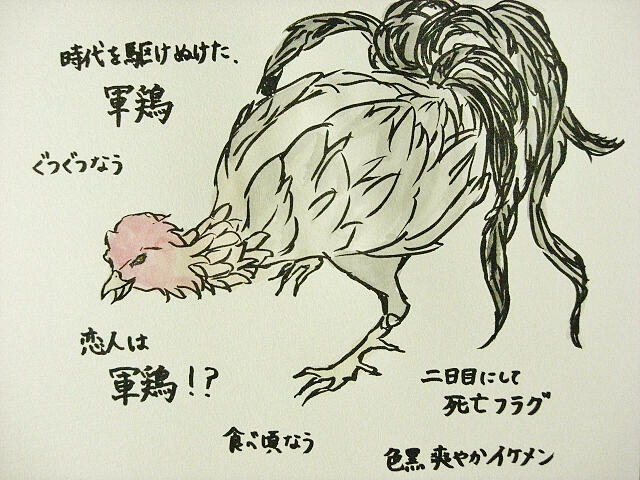 時代を駆けぬけた、
軍鶏
ぐつぐつなう
恋人は
軍鶏!?
二日目にして
死亡フラグ
食べ頃なう
色黒爽やかイケメン